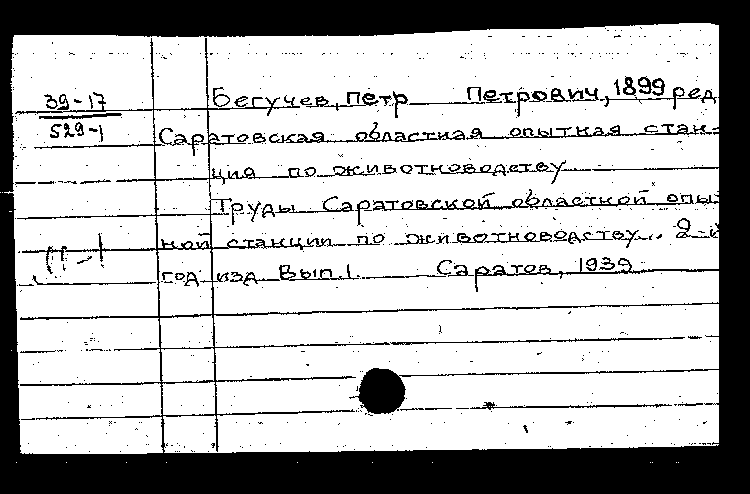 39-17
529-1
Бегучев, Петр Петрович, 1899 ред
Саратовская областная опытная стан-
ция по животноводству
Труды Саратовской областной опы-
ной станции по животноводству... 2-й
год изд Вып. 1. Саратов, 1939